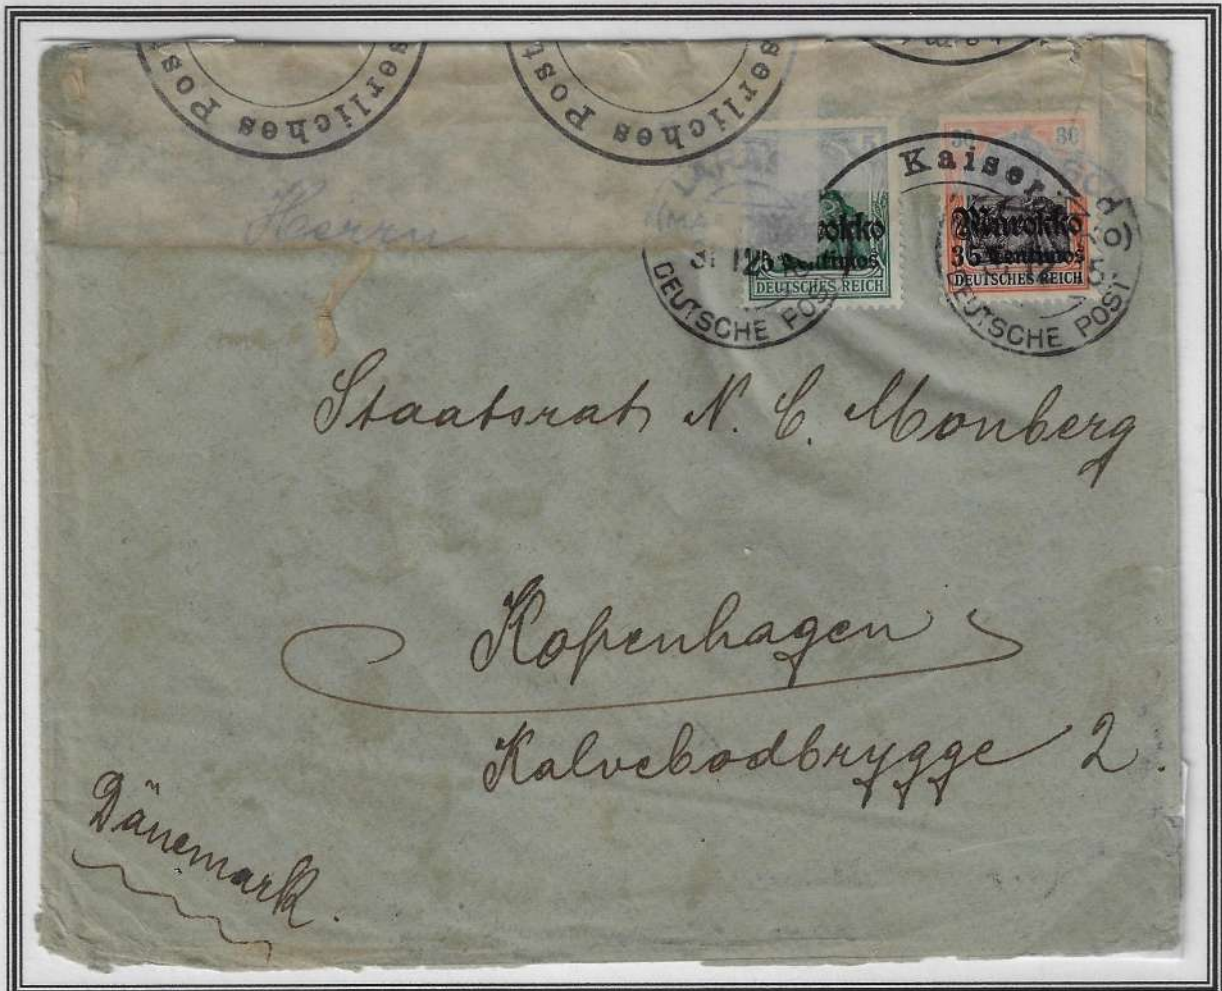 serliches Post
serliches Post
Kaiser
30 30
Marokko
35 Centimos
DEUTSCHES REICH
DEUTSCHES REICH
DEUTSCHE POST
DEUTSCHE POST
Herrn
Staatsrat N. C. Monberg
Kopenhagen
Kalvebodbrygge 2.
Dänemark.